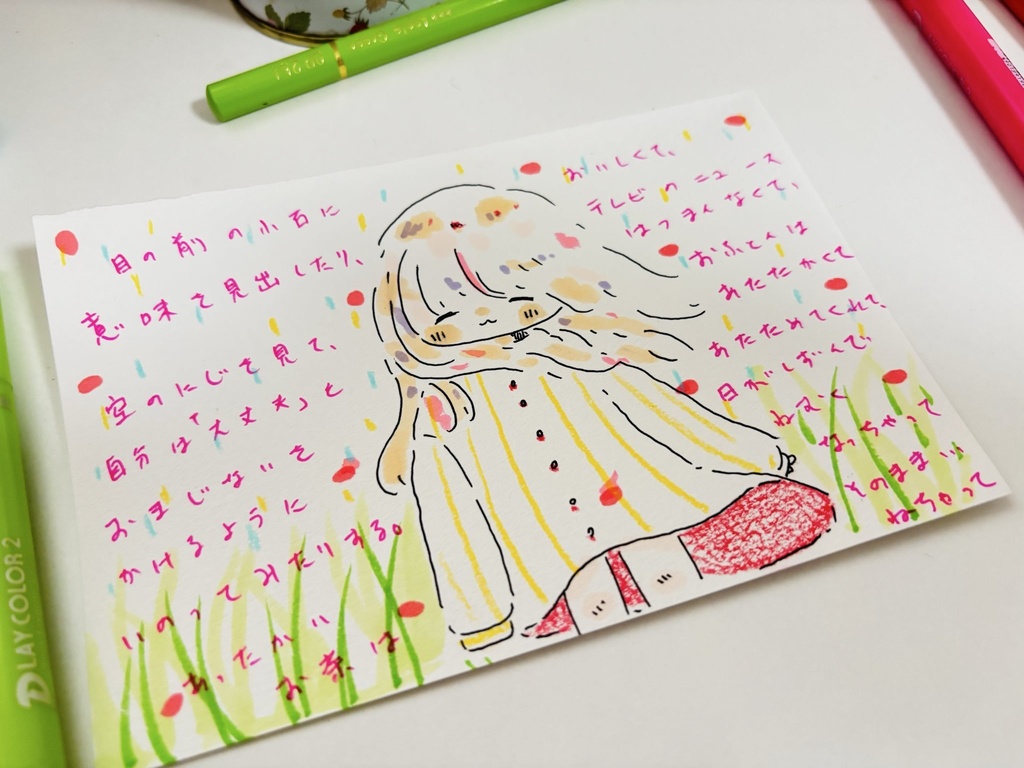 目の前の小石に
意味を見出したり、
空のにじを見て、
自分は「大丈夫」と
おまじないを
かけるように
いのってみたりする。
あったかい
お茶は
おいしくて、
テレビのニュース
はつまんなくて、
おふとんは
あたたかくて
あたためてくれて、
日がしずんで、
ねむく
なっちゃって
そのままい
ねちゃって
PLAY COLOR 2